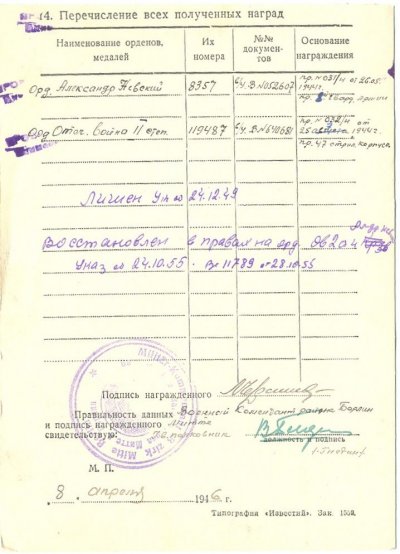 14. Перечисление всех полученных наград
Наименование орденов, медалей
Их номера
№№ документов
Основание награждения
Орд. Александр Невский 8357 В №052607 пр. №031/н от 26.05.
1944г.
гвард. армии
Орд. Отеч. война II степ. 119487 В №640681 пр. №032/н от
25 1944г.
пр. 47 стрел. корпуса
Лишен Ук. от 24.12.49
Восстановлен в правах на орд.
Указ от 24.10.55 11789 от 28.10.55
Подпись награжденного
Правильность данных Военный Комендант района Берлин
и подпись награжденного Митте
свидетельствую: Гв. полковник
должность и подпись
М. П.
8 апреля 1946 г.
Типография «Известий». Зак. 1552.